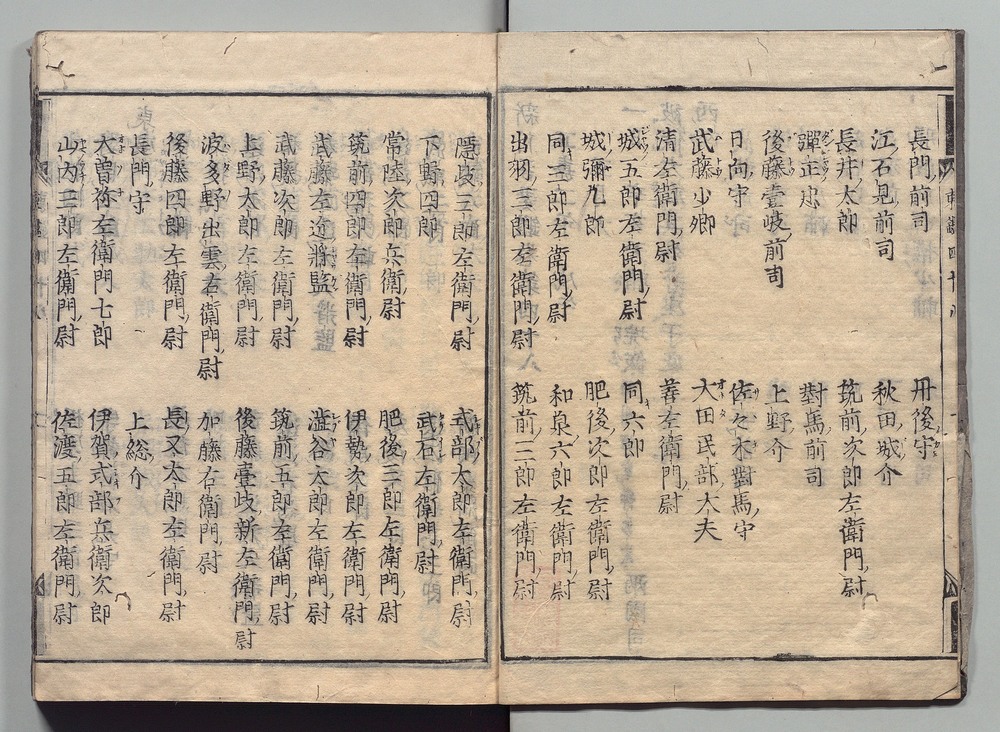 長門前司
丹後守
江石見前司
秋田城介
長井太郎
筑前次郎左衞門尉
彈正忠
對馬前司
後藤壹岐前司
上野介
日向守
佐々木對馬守
武藤少卿
大田民部大夫
清左衞門尉
城五郎左衞門尉
同六郎
城彌九郎
肥後次郎左衞門尉
同三郎左衞門尉
和泉六郎左衞門尉
出羽三郎左衞門尉
筑前三郎左衞門尉
隱岐三郎左衞門尉
式部太郎左衞門尉
下野四郎
武石左衞門尉
常陸次郎兵衞尉
肥後三郎左衞門尉
筑前四郎左衞門尉
伊勢次郎左衞門尉
武藤左近將監
澁谷太郎左衞門尉
武藤次郎左衞門尉
筑前五郎左衞門尉
上野太郎左衞門尉
後藤壹岐新左衞門尉
波多野出雲右衞門尉
加藤右衞門尉
後藤四郎左衞門尉
長又太郎左衞門尉
長門守
上総介
大曽祢左衞門七郎
伊賀式部兵衞次郎
山内三郎左衞門尉
佐渡五郎左衞門尉